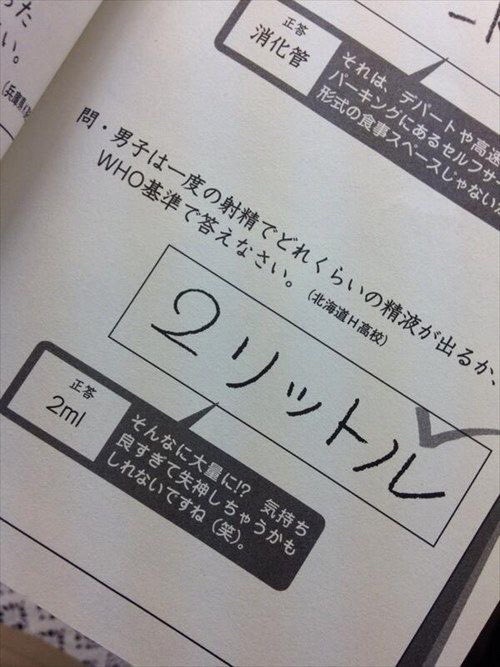 った
い。
(兵庫県
正答
消化管
それは、デパートや高速
パーキングにあるセルフサ
形式の食事スペースじゃない
問・男子は一度の射精でどれくらいの精液が出るか、
WHO基準で答えなさい。(北海道H高校)
2リットル
正答
2ml
そんなに大量に!? 気持ち
良すぎて失神しちゃうかも
しれないですね(笑)。